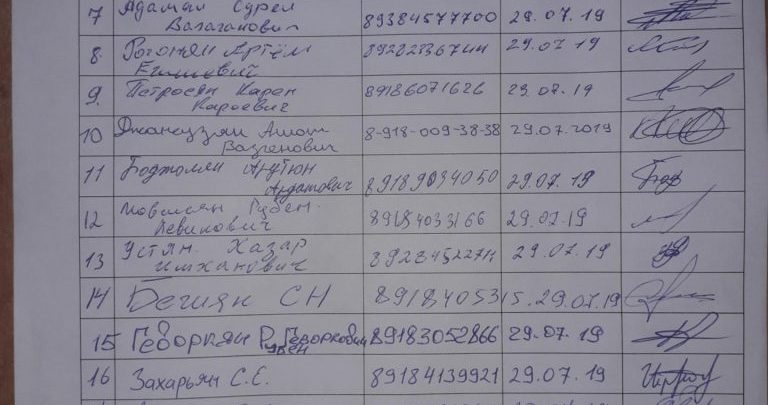 7 Адамян Сурен 89384577700 29.07.19
Вазаганович
8. Рогонян Артём 29.07.19
Егишевич
9. Петросян Карен 89186071626 29.07.19
Кароевич
10 Ашот 8-918-009-38-38 29.07.2019
Вазгенович
11 Арутюн 89189034050 29.07.19
12 Мовсисян Рубен 89184033166 29.07.19
Левикович
13 Устян Хазар 29.07.19
Ишханович
14 Бегиян СН 8918405315. 29.07.19
15 Геворкян Р. Геворкович 89183052866 29.07.19
убен
16 Захарьян С.Е. 89184139921 29.07.19